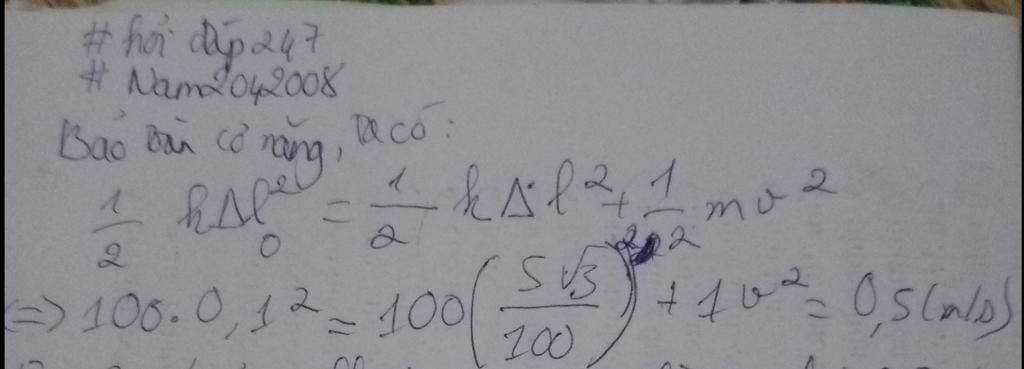 # hỏi đáp247
# Nam2042008
Bảo toàn cơ năng, ta có:
1/2 kΔl₀² = 1/2 kΔl² + 1/2 mv²
<=> 100.0,1² = 100(5√3/100)² + 1v² = 0,5(m/s)